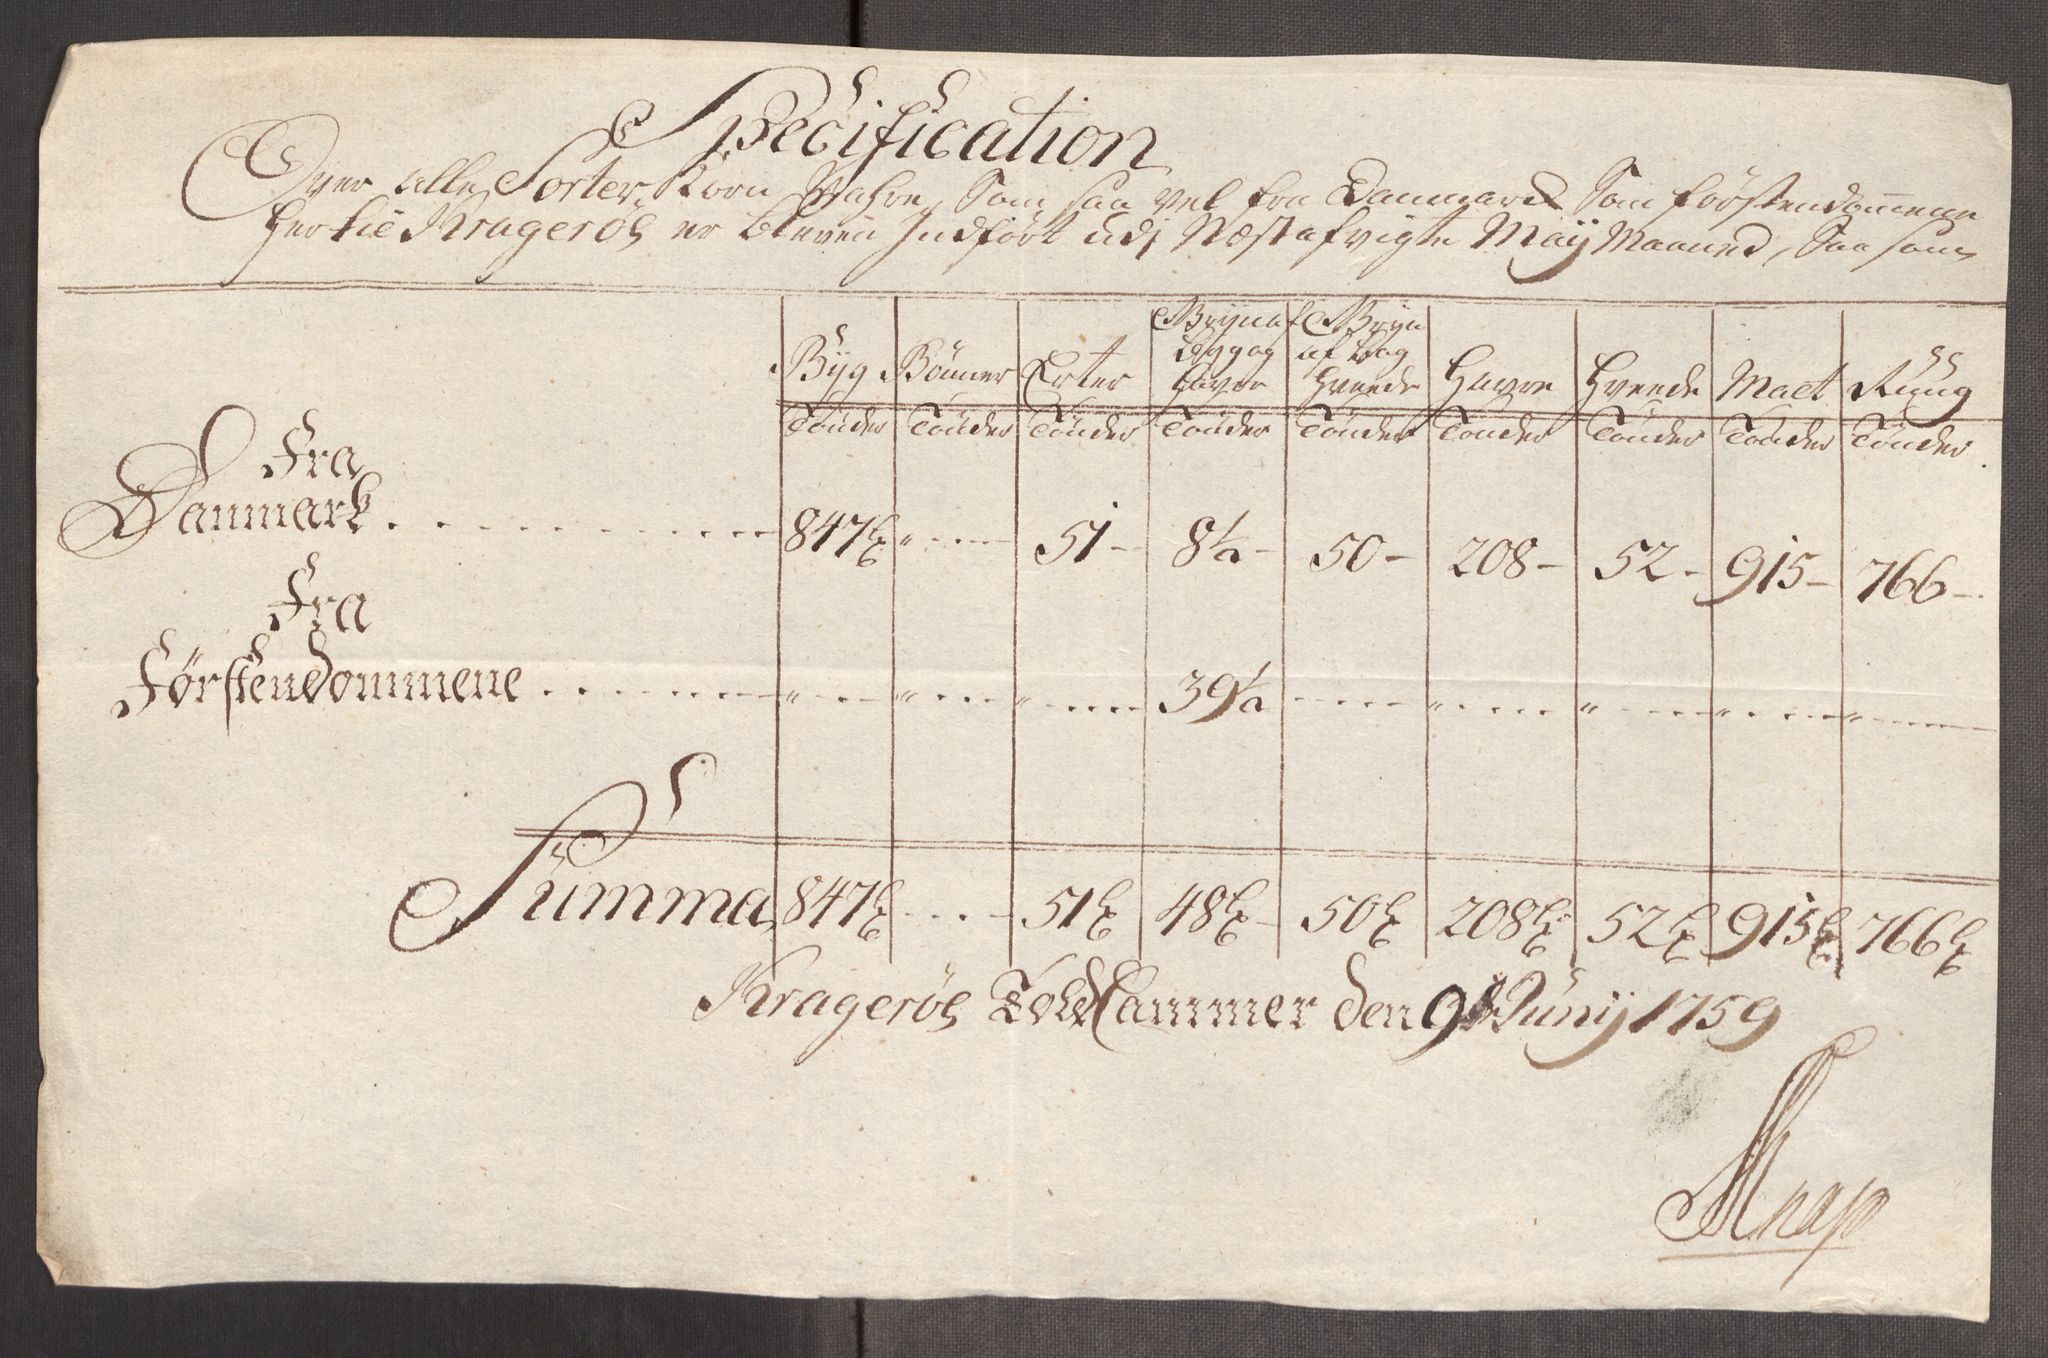 Specification
Over alle Sorter Korn Vahre, Som saa vel fra Danmark Som förstendommene
her til Krageröe er bleven Indfört udj Næst afvigte Maij Maaned, Saa som
Byg Bönner Erter Gryn af Byg og Havre Gryn af Bog Hvede Havre Hvede Malt Rüüg
Tönder Tönder Tönder Tönder Tönder Tönder Tönder Tönder Tönder
Fra
Danmark 847 51 - 8½ - 50 - 208 - 52 - 915 - 766 -
Fra
Förstendommene 39½
Summa 847 51 48 50 208 52 915 766
Krageröe Told Cammer den 9 Junij 1759
Knap